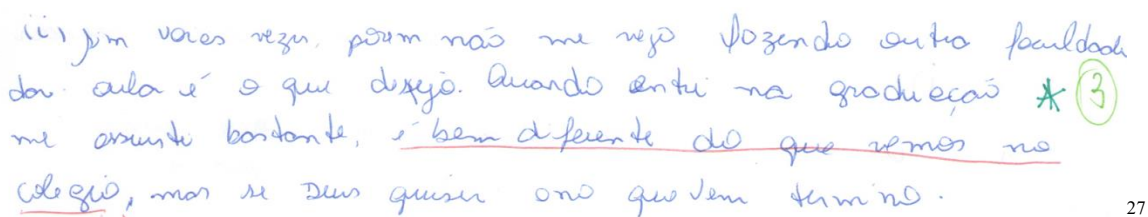 (ii) Sim varas vezes, porem não me vejo fazendo outra faculdade
dar aula é o que desejo. Quando entrei na graduecão * 3
me assustei bastante, é bem diferente do que vemos no
colegio, mas se Deus quiser ano que vem termino.
27